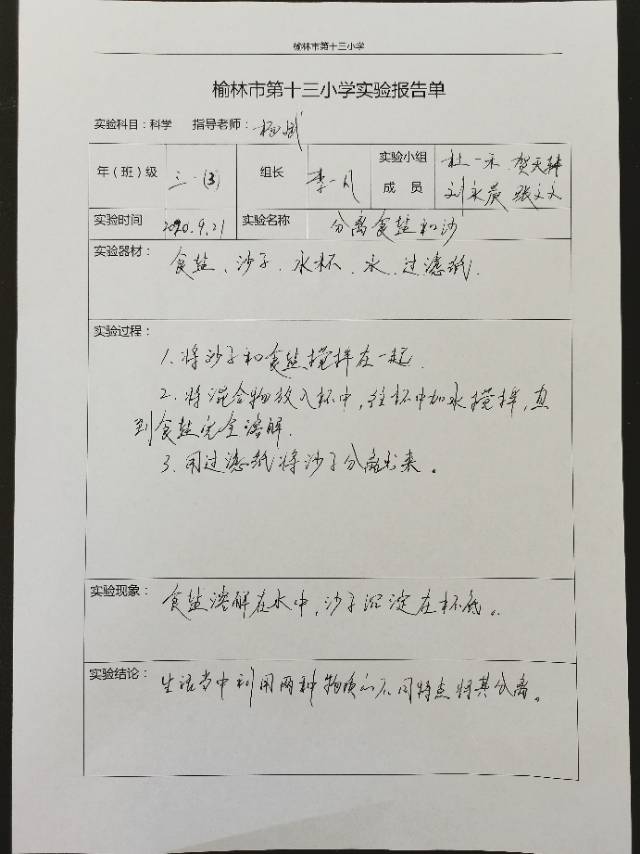 榆林市第十三小学
榆林市第十三小学实验报告单
实验科目：科学 指导老师：杨斌
年（班）级 三·(3) 组长 李一凡 实验小组 杜一禾 贺天
成员 刘永晨 张文文
实验时间 2020.9.21 实验名称 分离食盐和沙
实验器材： 食盐、沙子、水杯、水、过滤纸.
实验过程：
1.将沙子和食盐搅拌在一起.
2.将混合物放入杯中，往杯中加水搅拌，直
到食盐完全溶解.
3.用过滤纸将沙子分离出来。
实验现象： 食盐溶解在水中，沙子沉淀在杯底。
实验结论： 生活当中利用两种物质的不同特点将其分离。